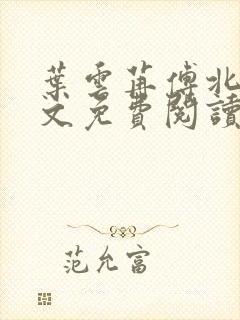 葉雲苒傅北
文免費閱讀
范允富